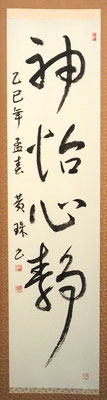 神怡心静
乙巳年孟春 黄珠书